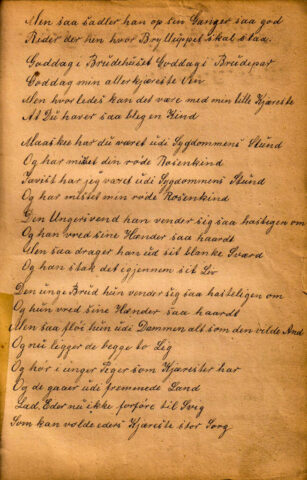 Men saa sadler han op sin Ganger saa god
Rider der hen hvor Bryllüppet skal staa.
Goddag i Brüdehüset Goddag i Brüdepar
Goddag min allerkjæreste Ven
Men hvorledes kan det være med min lille Kjæreste
At Dü haver saa bleg en Kind
Maaskee har dü været üdi Sygdommens Stünd
Og har mistet din røde Rosenkind
Javist har jeg været üdi Sygdommens Stünd
Og har mistet min røde Rosenkind
Den Ungersvend han vender sig saa hastegen om
Og han vred sine Hænder saa haardt
Men saa drager han üd sit blanke Sværd
Og han stak det egjennem sit Liv
Den ünge Brüd hün vender sig saa hasteligen om
Og hün vred sine Hænder saa haardt
Men saa fløi hün üde Dammen alt som den vilde And
Og nü ligger de begge to Lig
Og hør i ünger Piger som Kjærester har
Og de gaaer üdi fremmede Land
Lad Eder nü ikke forføre til Svig
Som kan volde eders Kjæreste stor Sorg